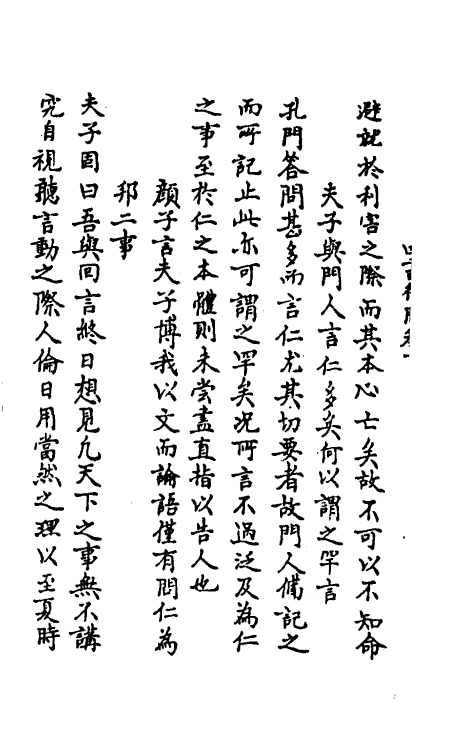 避就於利害之際而其本心亡矣故不可以不知命
夫子與門人言仁多矣何以謂之罕言
孔門答問甚多而言仁尤其切要者故門人備記之
而所記止此亦可謂之罕矣况所言不過泛及為仁
之事至於仁之本體則未嘗盡直指以告人也
顔子言夫子博我以文而論語僅有問仁為
邦二事
夫子固曰吾與回言終日想見凡天下之事無不講
究自視聽言動之際人倫日用當然之理以至夏時